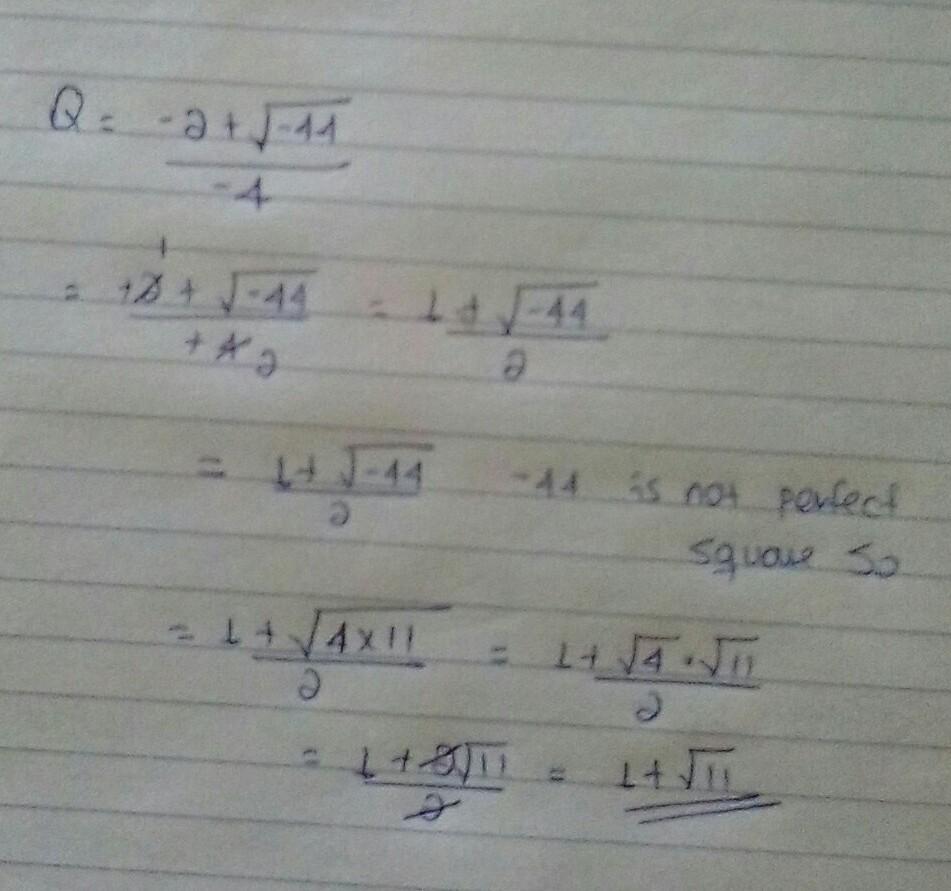 Q = -2 + √-44 / -4
= +2 1 + √-44 / +4 2 = 1 + √-44 / 2
= 1 + √-44 / 2 -44 is not perfect
square so
= 1 + √4×11 / 2 = 1 + √4 · √11 / 2
= 1 + 2√11 / 2 = 1 + √11